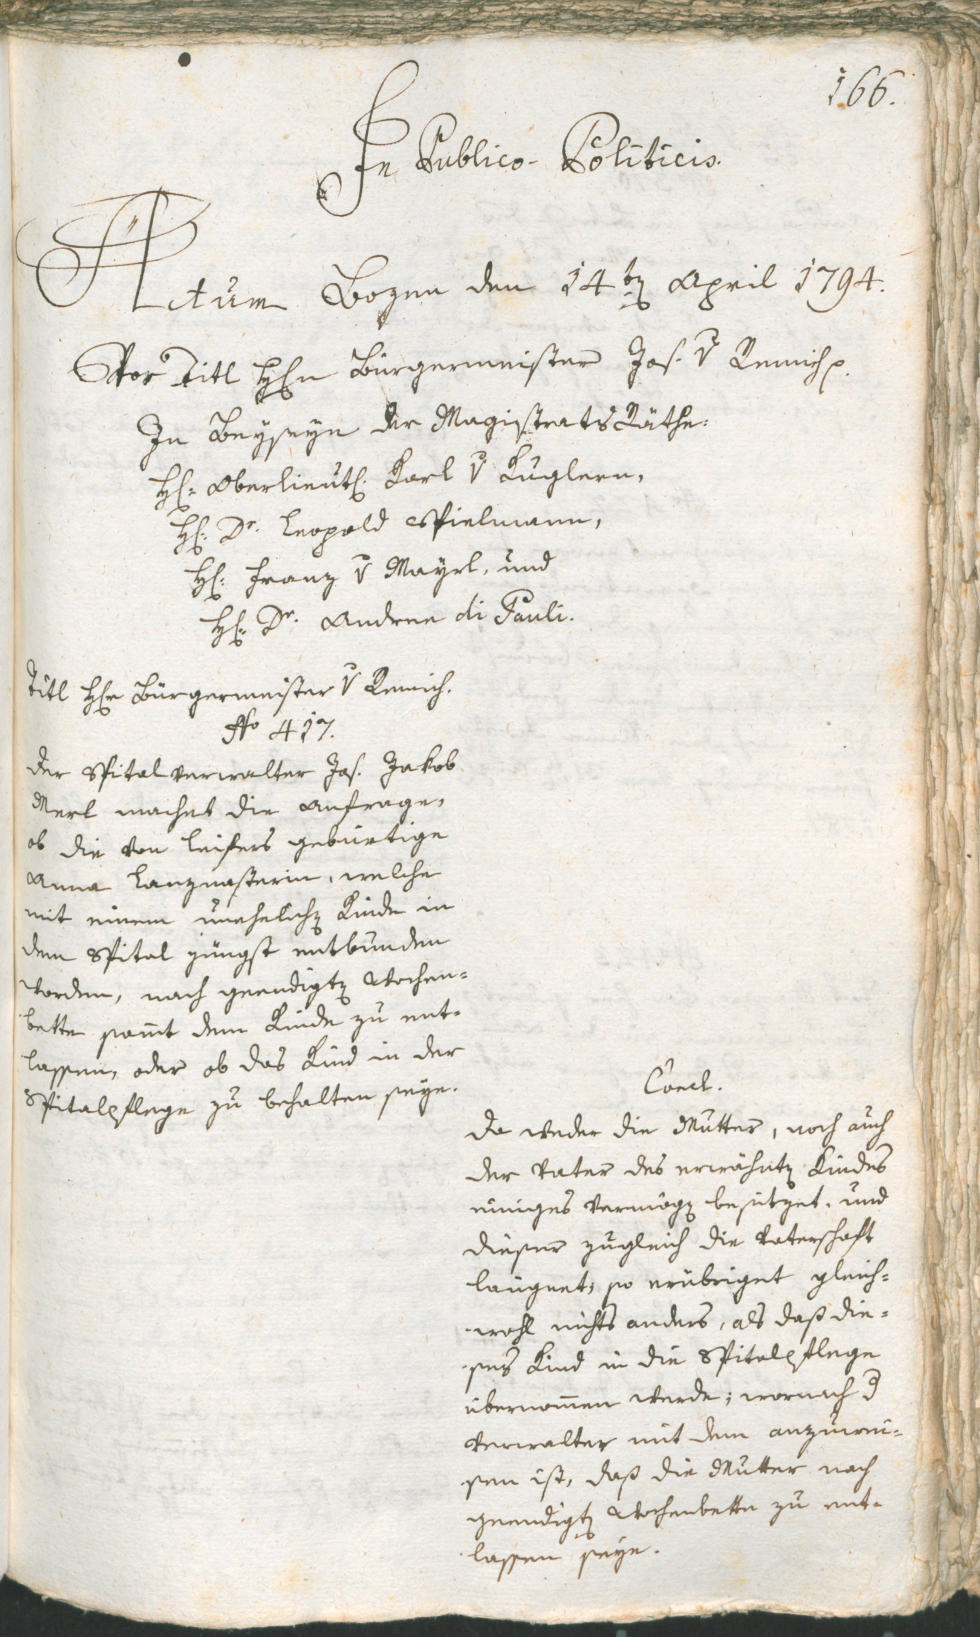 166.
In Publico-Politicis.
Actum Bozen den 14tꝫ April 1794.
Vor Titl Hℓn Bürgermeister Jos. v Remich p.
In Beyseyn der Magistrats Räthe.
Hℓ: Oberlieutℓ: Karl v Kuglern,
Hℓ: Dr. Leopold Spielmann,
Hℓ: Franz v Mayrl, und
Hℓ: Dr. Andree di Pauli.
Titl Hℓn Bürgermeister v Remich.
No 417.
Der Spitalverwalter Jos. Jakob
Merl machet die Anfrage,
ob die von Leifers gebürtige
Anna Lanznasterin, welche
mit einem unehelichꝫ Kinde in
dem Spital jüngst entbunden
worden, nach geendigtꝫ Wochen-
bette samt dem Kinde zu ent-
lassen, oder ob das Kind in der
Spitalpflege zu behalten seye.
Concl.
Da weder die Mutter, noch auch
der Vater des erwähntꝫ Kindes
einiges Vermögꝫ besitzet, und
dieser zugleich die Vaterschaft
laugnet; so erübriget gleich-
wohl nichts anders, als daß die-
ses Kind in die Spitalpflege
übernomen werde; wornach d
Verwalter mit dem anzuwei-
sen ist, daß die Mutter nach
geendigtꝫ Wochenbette zu ent-
lassen seye.